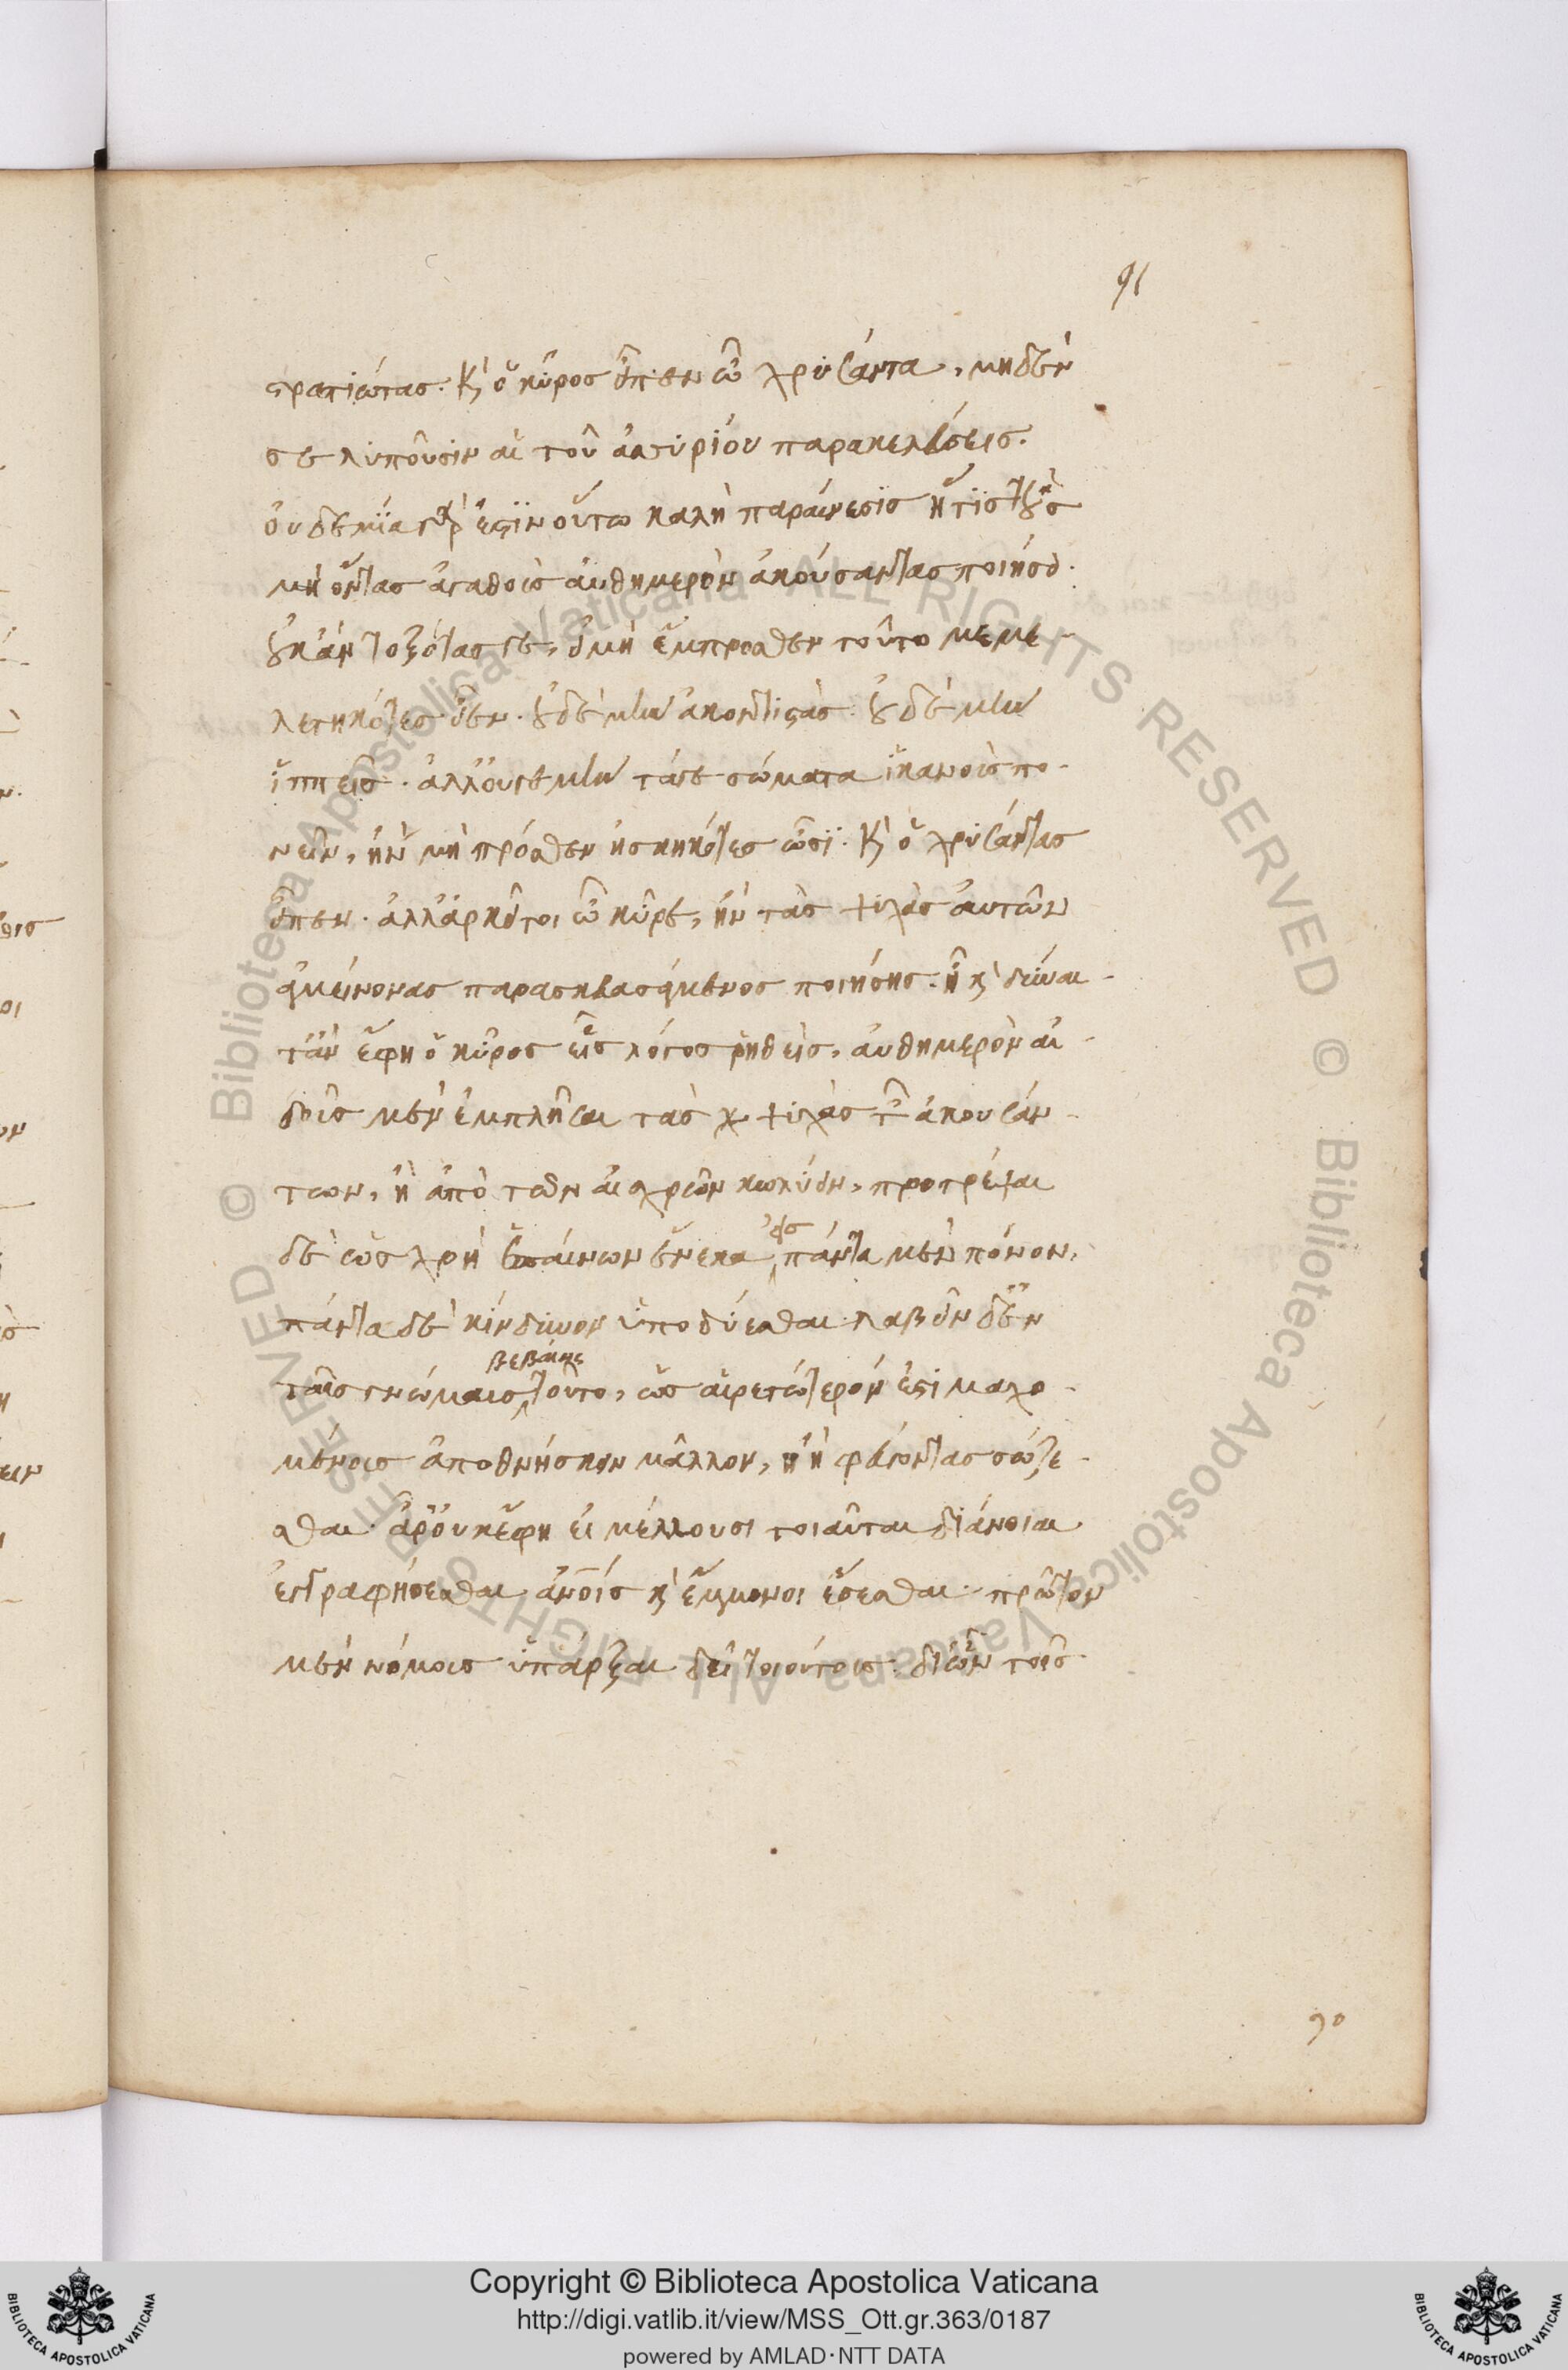 91
στρατιώτας. κὶ ὁ κῦρος εἶπεν ὦ χρυσάντα, μηδέν
σε λυπούσιν αἱ τοῦ ἀσσυρίου παρακελεύσεις.
ουδεμΐα γὰρ ἐστϊν οὕτω καλὴ παραίνεσϊς ἥτϊς τοὺς
μὴ ὄντας ἀγαθοὺς αὐθημερὸν ἀκούσαντας ποιήσει.
οὐκἂν τοξότας γε, εἰμὴ ἔμπροσθεν τοῦτο μεμε-
λετηκότες εἶεν. οὐδὲ μὴν ἀκοντιστὰς. οὐδὲ μὴν
ἱππεῖς. ἀλλ' οὐγε μὴν τάγε σώματα ἱκανοὺς πο-
νεῖν, ἢν μὴ πρόσθεν ἠσκηκότες ὦσϊ. κὶ ὁ χρυσάντας
εἶπεν. ἀλλ' ἀρκεῖτοι ὦ κῦρε, ἢν τὰς ψυχὰς ἀυτῶν
ἀμείνονας παρασκευασάμενος ποιήσης. ἦ κὶ δύναι-
τἂν ἔφη ὁ κῦρος εἷς λόγος ῥηθεὶς, ἀυθημερὸν αἰ-
δοῦς μὲν ἐμπλῆσαι τὰς ψυχὰς τῶν ἀκουσάν-
των, ἢ ἀπὸ τῶν αἰσχρῶν κωλύειν, προτρέψαι
δὲ ὡς χρὴ ἐπαίνων ἕνεκα πάντα μὲν πόνον,
πάντα δὲ κίνδυνον ὑποδύεσθαι. λαβεῖν δ' ἐν
βεβαίως
ταῖς γνώμαις τοῦτο, ὡς αἱρετώτερόν ἐστι μαχο-
μένοις ἀποθνήσκειν μᾶλλον, ἢ φεύγοντας σώζε-
σθαι. ἆρ' ὀυκ ἔφη εἰ μέλλουσι τοιαῦται διάνοιαι
ἐγγραφήσεσθαι ἀνοις κὶ ἔμμονοι ἔσεσθαι. πρῶτον
μὲν νόμους ὑπάρξαι δεῖ τοιούτους. δι' ὧν τοῖς
90
Copyright © Biblioteca Apostolica Vaticana
http://digi.vatlib.it/view/MSS_Ott.gr.363/0187
powered by AMLAD·NTT DATA